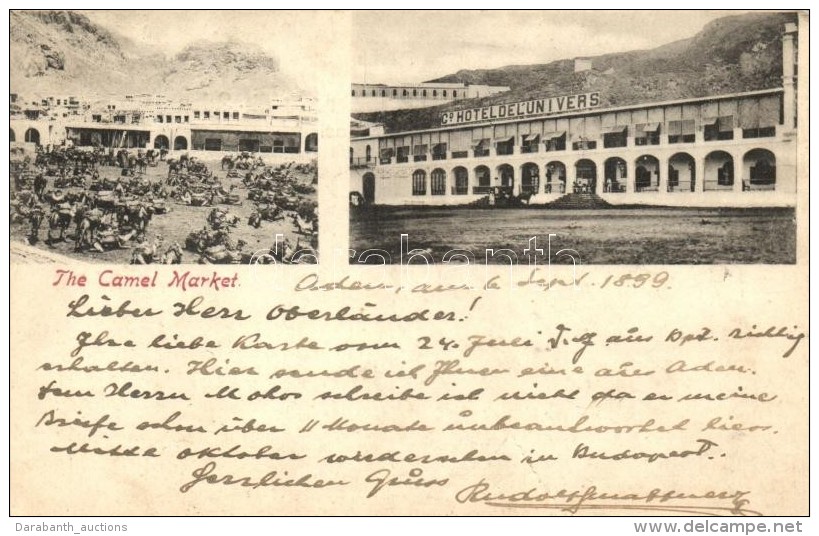 Gd HOTEL DE L'UNIVERS
darabanth
The Camel Market.
Aden, am 6 Sept. 1899.
Lieber Herr Oberländer!
Ihre liebe Karte vom 24. Juli d. J. aus Bpt. richtig
erhalten. Hier sende ich Ihnen eine aus Aden.
Dem Herrn Mokos schreibe ich nicht da er meine
Briefe schon über 11 Monate unbeantwortet liess.
Mitte Oktober wiedersehen in Budapest.
Herzlichen Gruss
Rudolf
Darabanth_auctions
http://www.delcampe.net